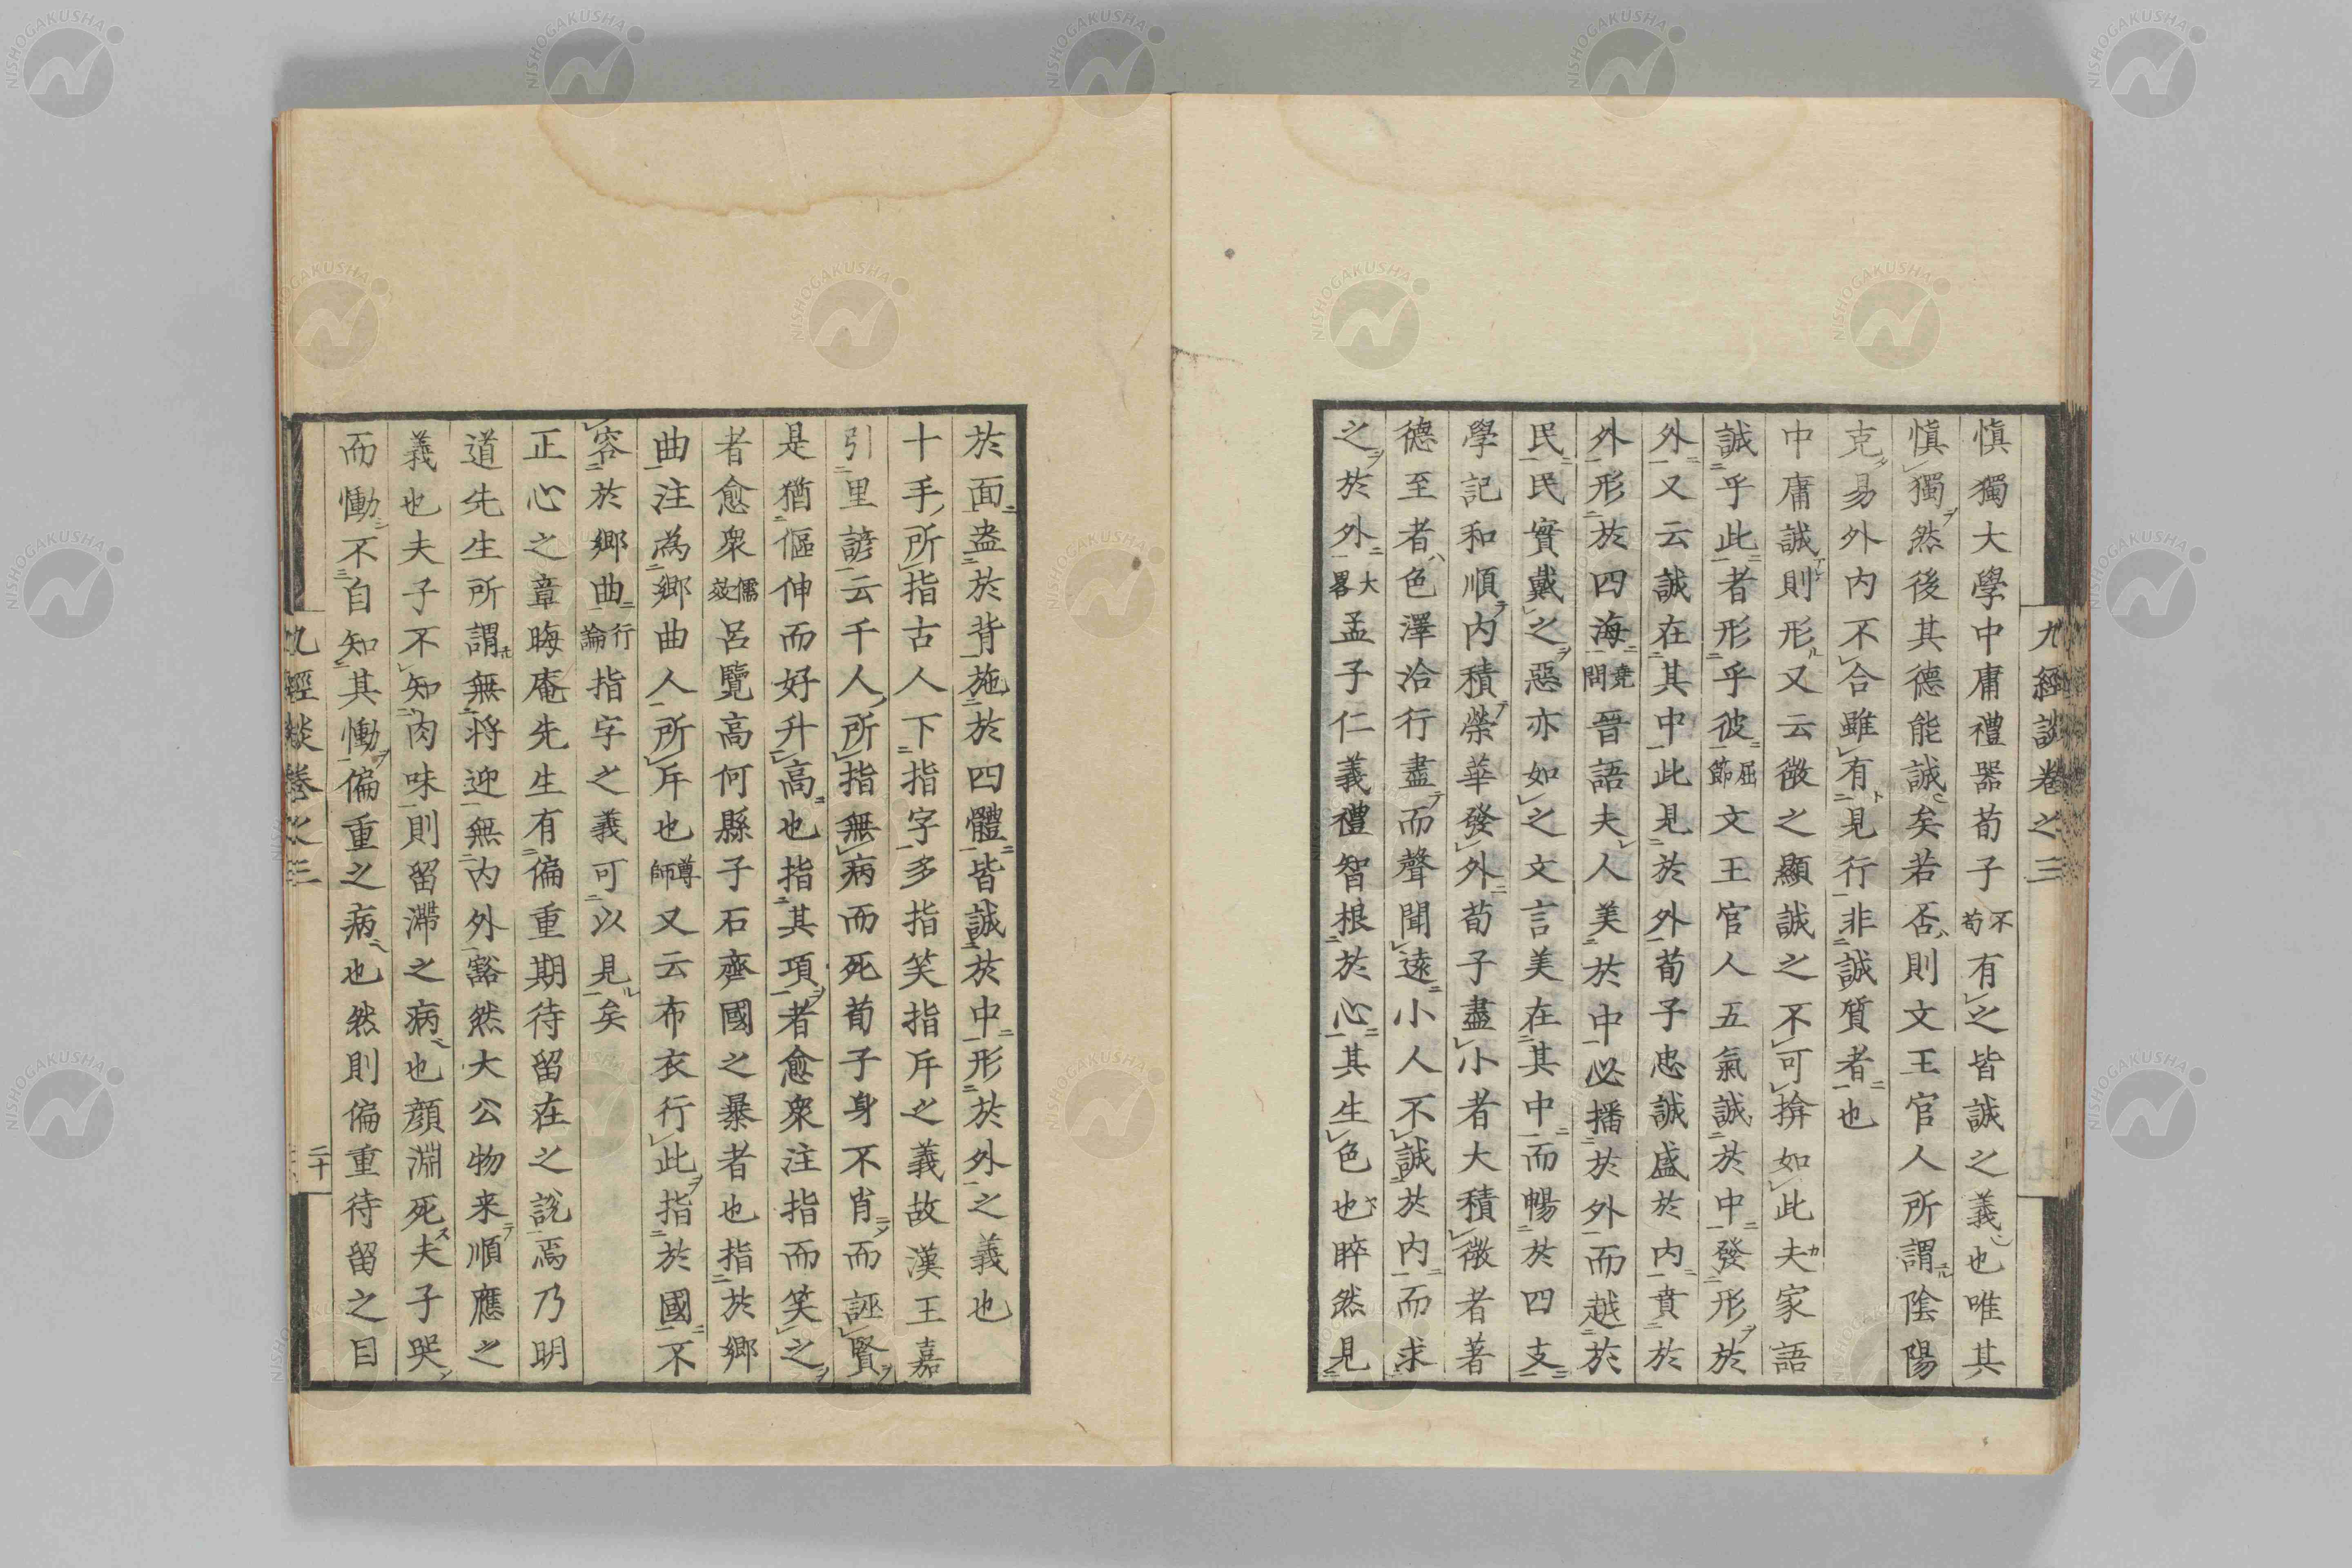 九經談卷之三
慎獨大學中庸禮器荀子不苟有之皆誠之義也唯其
慎獨然後其德能誠矣若否則文王官人所謂陰陽
克易外内不合雖有見行非誠質者也
中庸誠則形又云微之顯誠之不可揜如此夫家語
誠乎此者形乎彼屈節文王官人五氣誠於中發形於
外又云誠在其中此見於外荀子忠誠盛於内賁於
外形於四海堯問晉語夫人美於中必播於外而越於
民民實戴之惡亦如之文言美在其中而暢於四支
學記和順内積榮華發外荀子盡小者大積微者著
德至者色澤洽行盡而聲聞遠小人不誠於内而求
之於外大畧孟子仁義禮智根於心其生色也睟然見
於面盎於背施於四體皆誠於中形於外之義也
十手所指古人下指字多指笑指斥之義故漢王嘉
引里諺云千人所指無病而死荀子身不肖而誣賢
是猶傴伸而好升高也指其項者愈衆注指而笑之
者愈衆儒效呂覽高何縣子石齊國之暴者也指於郷
曲注為郷曲人所斥也尊師又云布衣行此指於國不
容於郷曲行論指字之義可以見矣
正心之章晦庵先生有偏重期待留在之説焉乃明
道先生所謂無将迎無内外豁然大公物来順應之
義也夫子不知肉味則留滯之病也顔淵死夫子哭
而慟不自知其慟偏重之病也然則偏重待留之目
九經談卷之三
二十
NISHOGAKUSHA